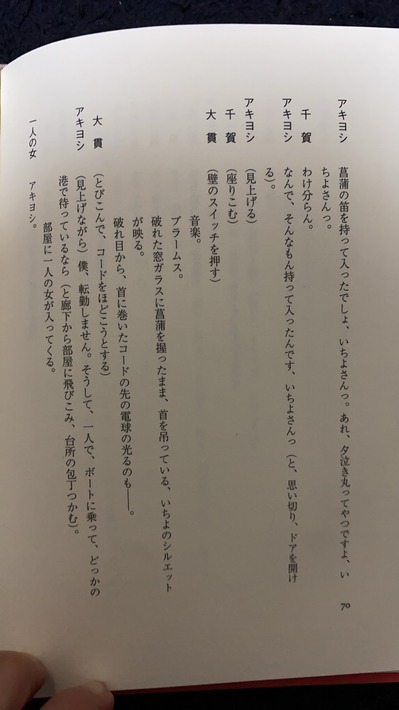 アキヨシ　菖蒲の笛を持って入ったでしょ、いちよさんっ。あれ、夕泣き丸ってやつですよ、い
ちよさんっ。
千　賀　わけ分らん。
アキヨシ　なんで、そんなもん持って入ったんです、いちよさんっ（と、思い切り、ドアを開け
る）。
アキヨシ　（見上げる）
千　賀　（座りこむ）
大　貫　（壁のスイッチを押す）
音楽。
ブラームス。
破れた窓ガラスに菖蒲を握ったまま、首を吊っている、いちよのシルエット
が映る。
破れ目から、首に巻いたコードの先の電球の光るのも──。
大　貫　（とびこんで、コードをほどこうとする）
アキヨシ　（見上げながら）僕、転勤しません。そうして、一人で、ボートに乗って、どっかの
港で待っているなら（と廊下から部屋に飛びこみ、台所の包丁つかむ）。
部屋に一人の女が入ってくる。
一人の女　アキヨシ。
70